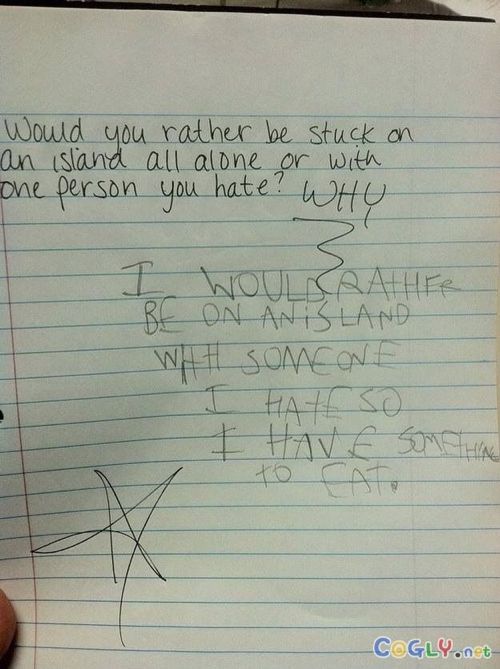 Would you rather be stuck on
an island all alone or with
one person you hate? WHY
I WOULD RATHER
BE ON AN ISLAND
WITH SOMEONE
I HATE SO
I HAVE SOMETHING
TO EAT.
COGLY.net